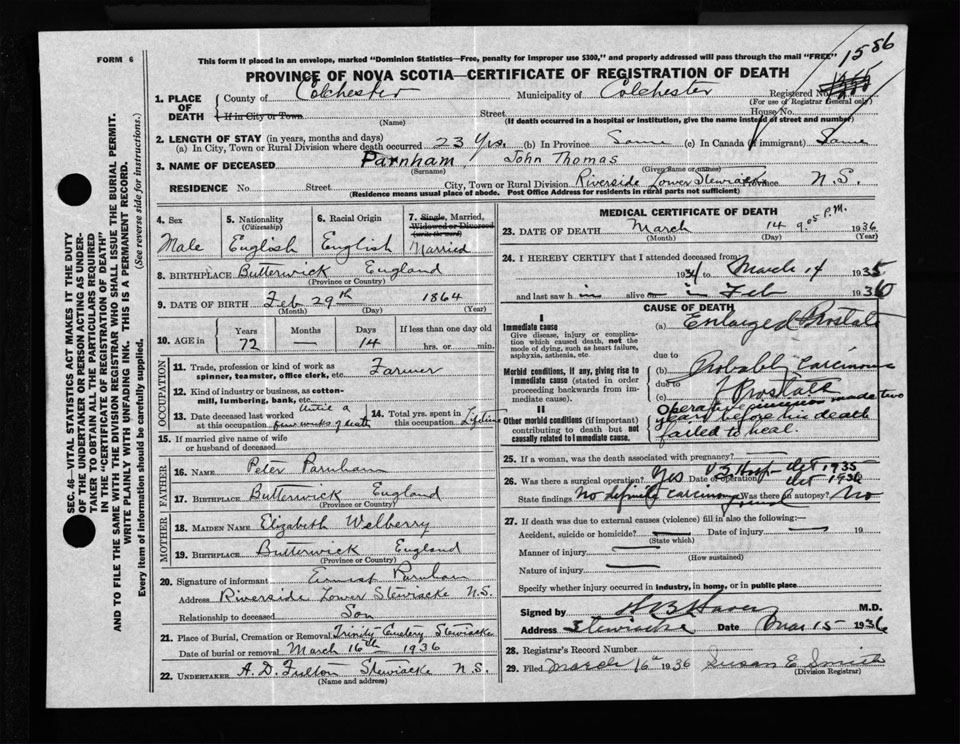 FORM 6
1586
This form if placed in an envelope, marked "Dominion Statistics—Free, penalty for improper use $300," and properly addressed will pass through the mail "FREE"
PROVINCE OF NOVA SCOTIA—CERTIFICATE OF REGISTRATION OF DEATH
1. PLACE OF DEATH
County of Colchester Municipality of Colchester Registered No.
(For use of Registrar General only)
If in City or Town Street House No.
(Name) (If death occurred in a hospital or institution, give the name instead of street and number)
2. LENGTH OF STAY (in years, months and days)
(a) In City, Town or Rural Division where death occurred 23 Yrs. (b) In Province Same (c) In Canada (if immigrant) Same
3. NAME OF DECEASED Parnham, John Thomas
(Surname) (Given name or names)
RESIDENCE No. Street City, Town or Rural Division Riverside Lower Stewiacke Province N.S.
(Residence means usual place of abode. Post Office Address for residents in rural parts not sufficient)
4. Sex
Male
5. Nationality
(Citizenship)
English
6. Racial Origin
English
7. Single, Married,
Widowed or Divorced
(write the word)
Married
8. BIRTHPLACE Butterwick England
(Province or Country)
9. DATE OF BIRTH Feb 29th 1864
(Month) (Day) (Year)
10. AGE in
Years Months Days If less than one day old
72 — 14 hrs. or min.
OCCUPATION
11. Trade, profession or kind of work as
spinner, teamster, office clerk, etc. Farmer
12. Kind of industry or business, as cotton-
mill, lumbering, bank, etc.
13. Date deceased last worked
at this occupation Until a few weeks of death
14. Total yrs. spent in
this occupation Lifetime
15. If married give name of wife
or husband of deceased
FATHER
16. NAME Peter Parnham
17. BIRTHPLACE Butterwick England
(Province or Country)
MOTHER
18. MAIDEN NAME Elizabeth Welberry
19. BIRTHPLACE Butterwick England
(Province or Country)
20. Signature of informant Ernest Parnham
Address Riverside Lower Stewiacke N.S.
Relationship to deceased Son
21. Place of Burial, Cremation or Removal Trinity Cemetery Stewiacke
Date of burial or removal March 16th 1936
22. UNDERTAKER A. D. Fulton Stewiacke N.S.
(Name and address)
MEDICAL CERTIFICATE OF DEATH
23. DATE OF DEATH March 14 9.05 P.M. 1936
(Month) (Day) (Year)
24. I HEREBY CERTIFY that I attended deceased from:
1934 to March 14 1935
and last saw h im alive on in Feb 1936
CAUSE OF DEATH
I
Immediate cause
Give disease, injury or complication which caused death, not the mode of dying, such as heart failure, asphyxia, asthenia, etc.
(a) Enlarged Prostate
due to
Morbid conditions, if any, giving rise to immediate cause (stated in order proceeding backwards from immediate cause).
(b) Probably Carcinoma
due to
(c) Prostate
II
Other morbid conditions (if important) contributing to death but not causally related to immediate cause.
made two
years before his death
failed to heal.
25. If a woman, was the death associated with pregnancy?
26. Was there a surgical operation? Yes V.G. Hosp Date of operation Oct 1935
Oct 1936
State findings No definite carcinoma found Was there an autopsy? No
27. If death was due to external causes (violence) fill in also the following:—
Accident, suicide or homicide? — Date of injury — 19
(State which)
Manner of injury —
(How sustained)
Nature of injury —
Specify whether injury occurred in industry, in home, or in public place
Signed by M.D.
Address Stewiacke Date Mar 15 1936
28. Registrar's Record Number
29. Filed March 16th 1936 Susan E. Smith
(Division Registrar)
SEC. 46—VITAL STATISTICS ACT MAKES IT THE DUTY
OF THE UNDERTAKER OR PERSON ACTING AS UNDER-
TAKER TO OBTAIN ALL THE PARTICULARS REQUIRED
IN THE "CERTIFICATE OF REGISTRATION OF DEATH"
AND TO FILE THE SAME WITH THE DIVISION REGISTRAR WHO SHALL ISSUE THE BURIAL PERMIT.
WRITE PLAINLY WITH UNFADING INK. THIS IS A PERMANENT RECORD.
Every item of information should be carefully supplied. (See reverse side for instructions.)